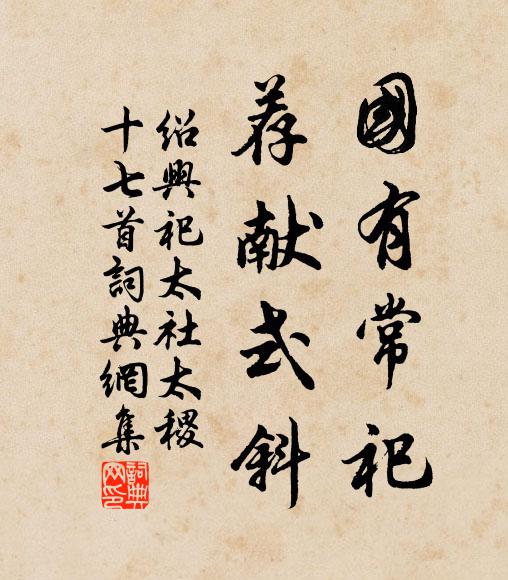 國有常祀
荐献式斜
紹興祀太社太稷
十七首詞典網集
詞典网印